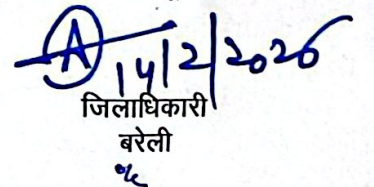 A 14/2/2026
जिलाधिकारी
बरेली